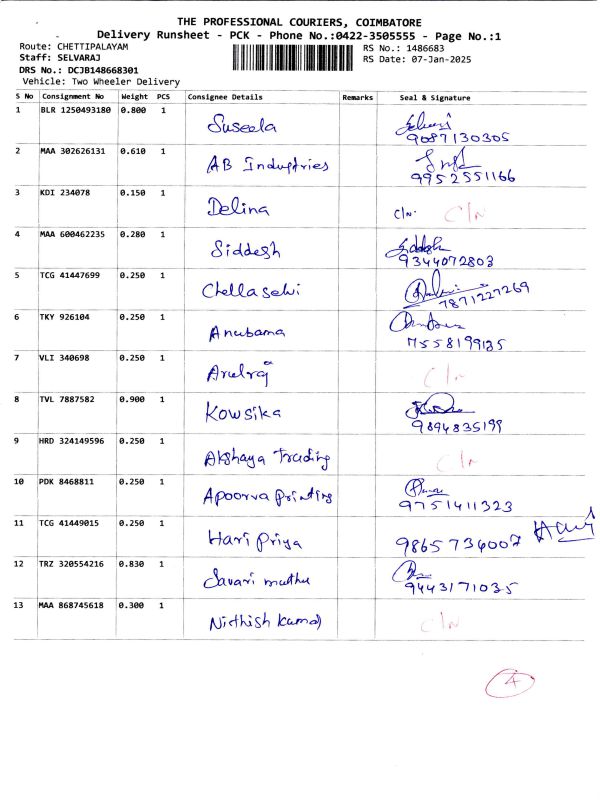 THE PROFESSIONAL COURIERS, COIMBATORE
Delivery Runsheet - PCK - Phone No.:0422-3505555 - Page No.:1
Route: CHETTIPALAYAM RS No.: 1486683
Staff: SELVARAJ RS Date: 07-Jan-2025
DRS No.: DCJB148668301
Vehicle: Two Wheeler Delivery
S No Consignment No Weight PCS Consignee Details Remarks Seal & Signature
1 BLR 1250493180 0.800 1 Suseela
9087130305
2 MAA 302626131 0.610 1 AB Industries
9952551166
3 KDI 234078 0.150 1 Delina C/N. C/N
4 MAA 600462235 0.280 1 Siddesh Siddesh
9344072803
5 TCG 41447699 0.250 1 Chellaselvi
7871227269
6 TKY 926104 0.250 1 Anubama
7558199135
7 VLI 340698 0.250 1 Arulraj C/N
8 TVL 7887582 0.900 1 Kowsika
9894835199
9 HRD 324149596 0.250 1 Akshaya Trading C/N
10 PDK 8468811 0.250 1 Apoorva Printing
9751411323
11 TCG 41449015 0.250 1 Hari Priya 9865736007 Hari
12 TRZ 320554216 0.830 1 Savari muthu
9443171035
13 MAA 868745618 0.300 1 Nithish Kumar C/N
4